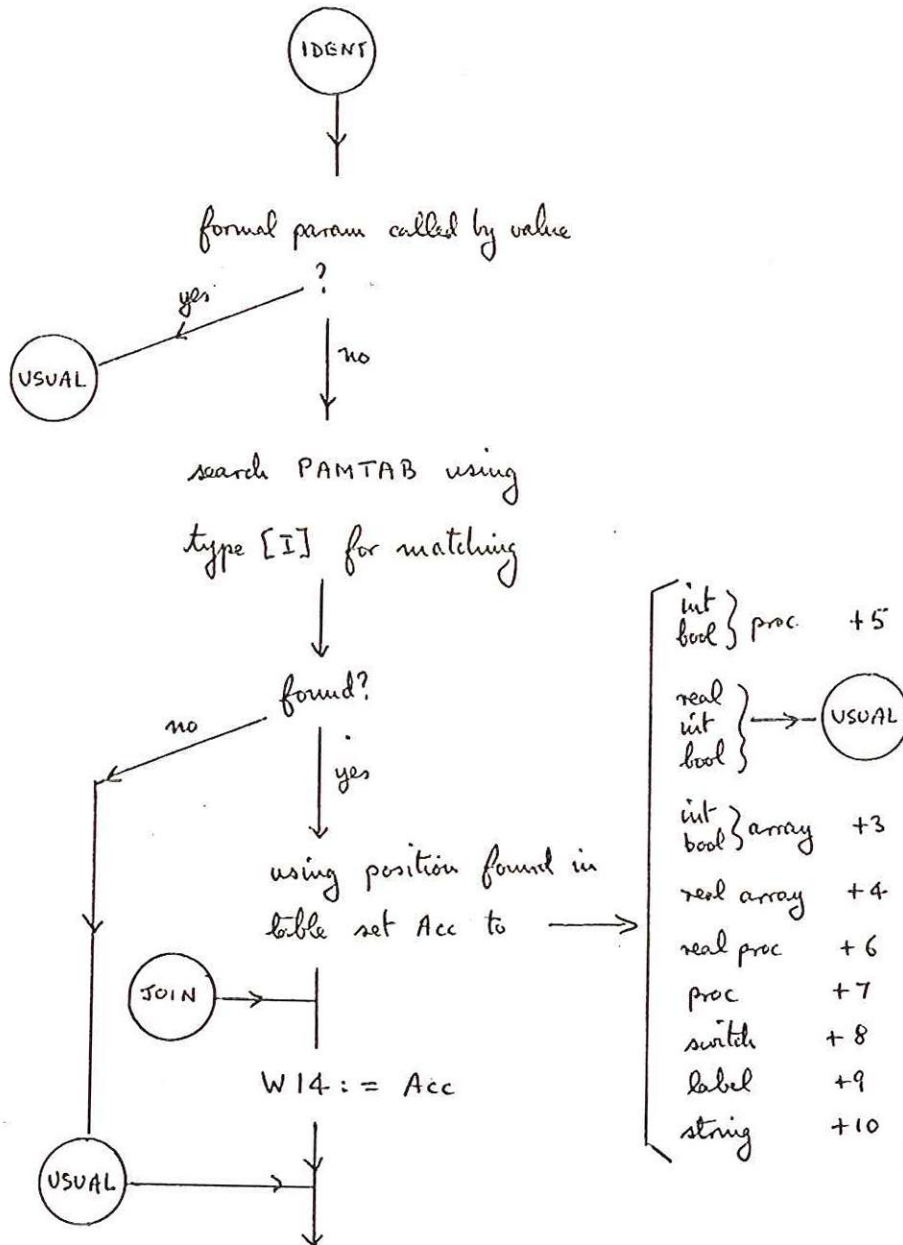 IDENT
formal param called by value
?
yes
USUAL
no
search PAMTAB using
type [I] for matching
found?
no
yes
using position found in
table set Acc to
JOIN
W14 := Acc
USUAL
int
bool } proc. +5
real
int
bool
USUAL
int
bool } array +3
real array +4
real proc +6
proc +7
switch +8
label +9
string +10